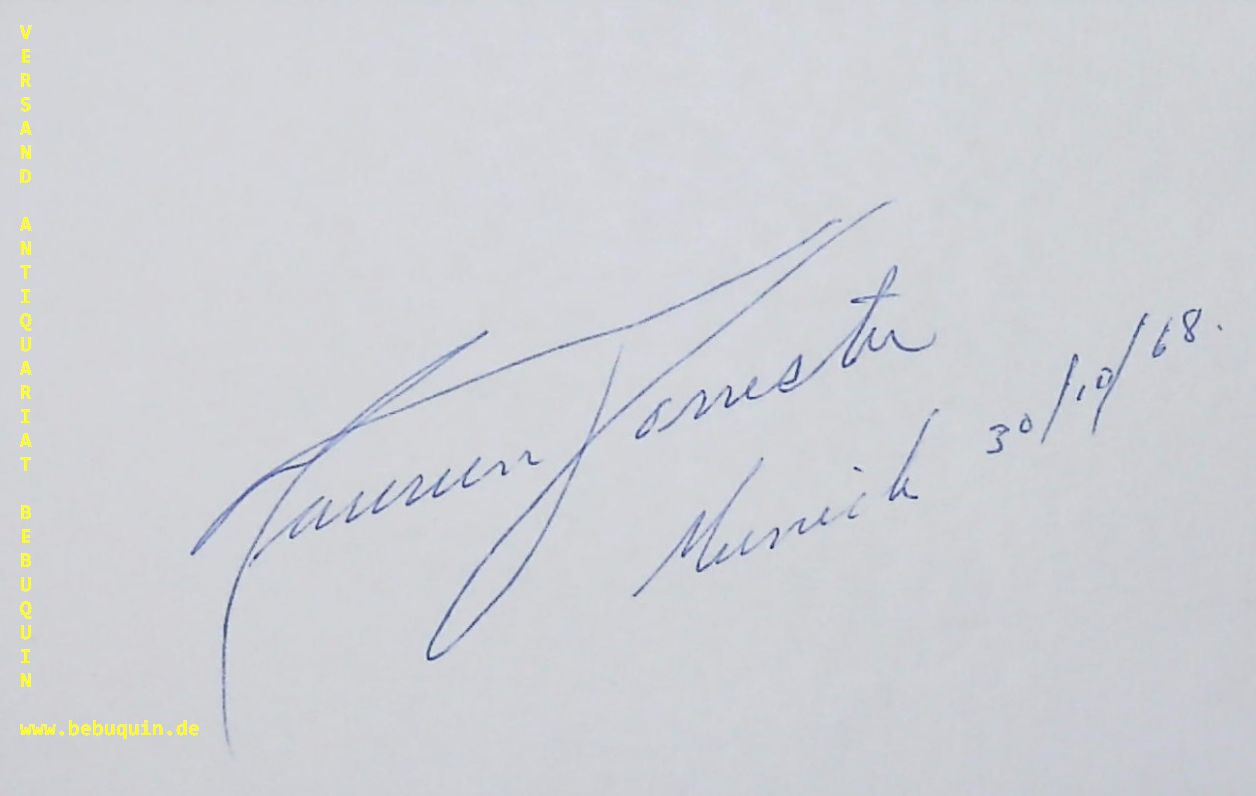 VERSAND ANTIQUARIAT BEBUQUIN
Maureen Forrester
Munich 30/10/68.
www.bebuquin.de